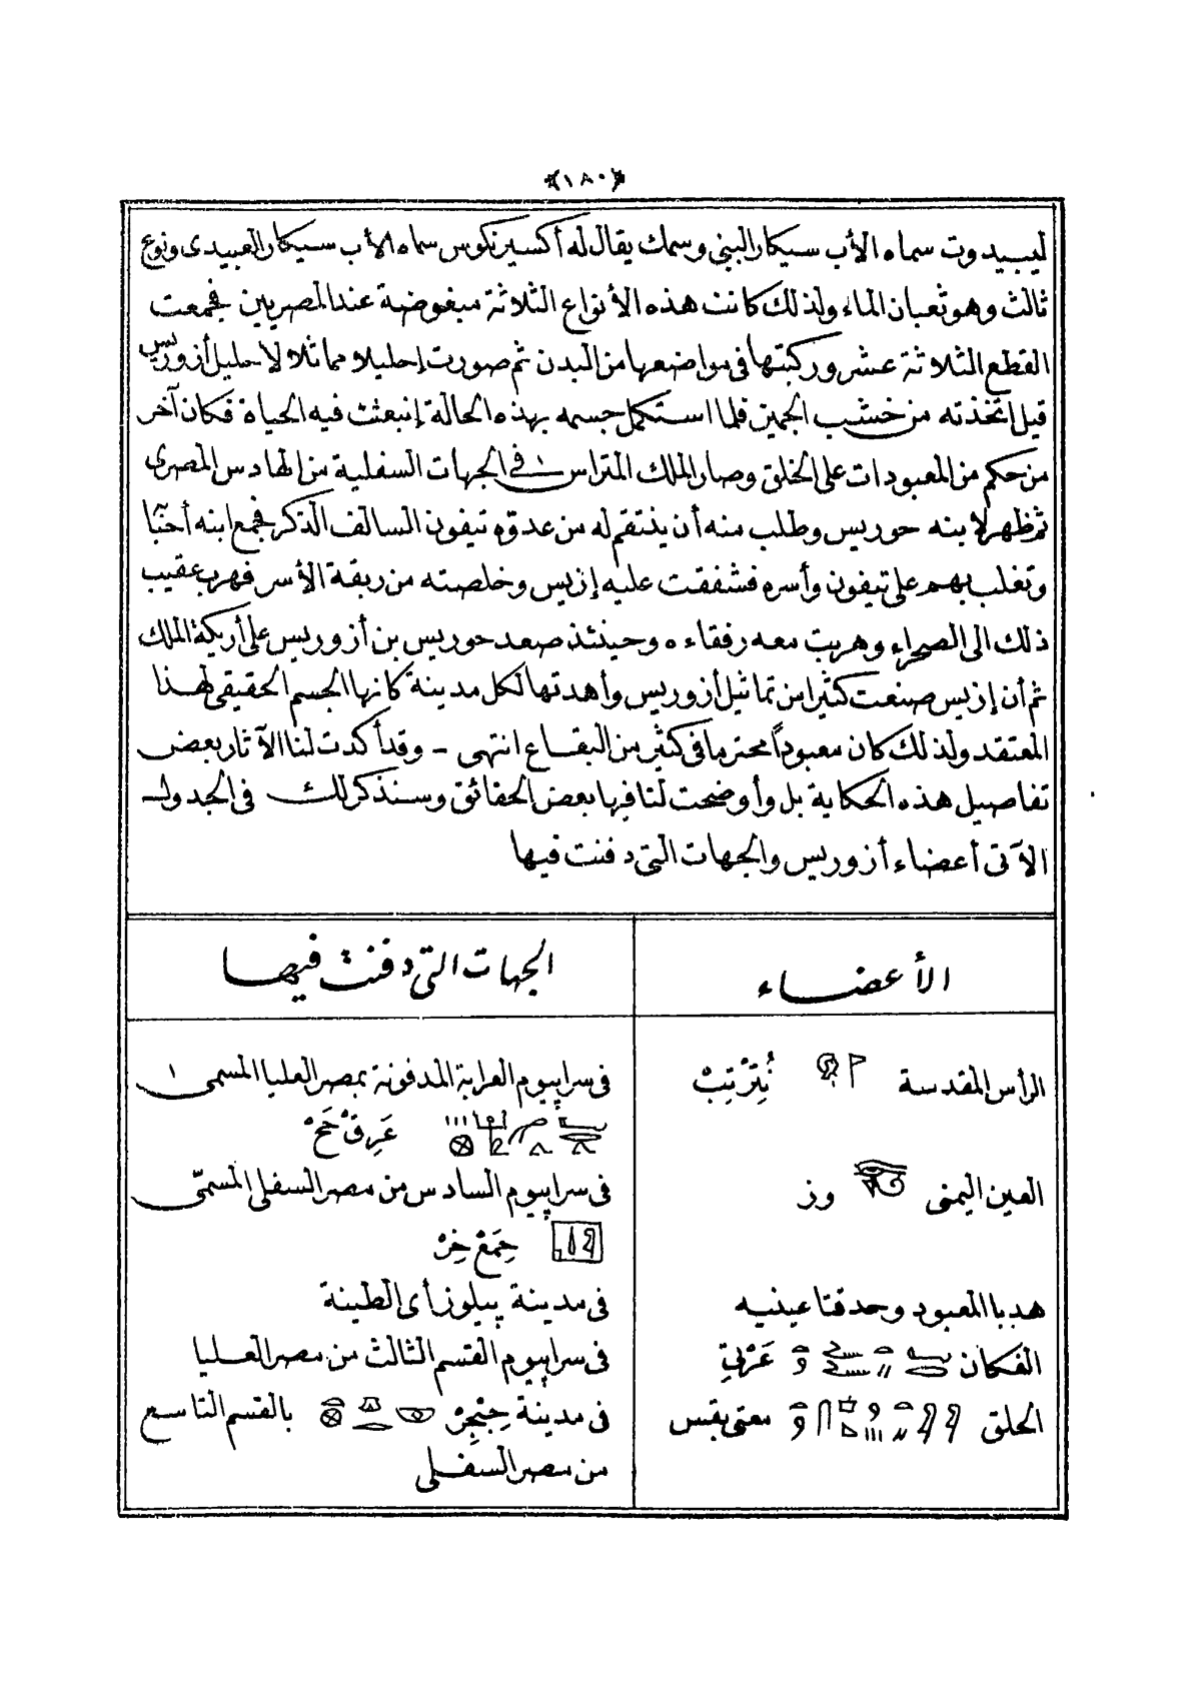 ﴿١٨٠﴾
ليبيدوت سماه الأب سيكار البني وسمك يقال له أكسيرنكوس سماه الأب سيكار العبيدى ونوع
ثالث وهو ثعبان الماء ولذلك كانت هذه الأنواع الثلاثة مبغوضة عند المصريين فجمعت
القطع الثلاثة عشر وركبتها فى مواضعها من البدن ثم صورت إحليلا مماثلا لاحليل أزوريس
قيل اتخذته من خشب الجميز فلما استكمل جسمه بهذه الحالة إنبعثت فيه الحياة فكان آخر
من حكم من المعبودات على الخلق وصار الملك المتراس فى الجهات السفلية من الهادس المصرى
ثم ظهر لابنه حوريس وطلب منه أن ينتقم له من عدوّه تيفون السالف الذكر فجمع ابنه أحبّا
وتغلب بهم على تيفون وأسره فشفقت عليه إزيس وخلصته من ربقة الأسر فهرب عقيب
ذلك الى الصحراء وهربت معه رفقاءه وحينئذ صعد حوريس بن أزوريس على أريكة الملك
ثم أن إزيس صنعت كثيرا من تماثيل أزوريس وأهدتها لكل مدينة كانها الجسم الحقيقى لهذا
المعتقد ولذلك كان معبوداً محترما فى كثير من البقاع انتهى - وقد أكدت لنا الآثار بعض
تفاصيل هذه الحكاية بل وأوضحت لنا فيها بعض الحقائق وسنذكر لك فى الجدول
الآتى أعضاء أزوريس والجهات التى دفنت فيها
الأعضاء الجهات التى دفنت فيها
الرأس المقدسة نُتِرْتِبْ فى سراپيوم العرابة المدفونة بمصر العليا المسمى
عَرِقْ حَحْ
العين اليمنى وز فى سراپيوم السادس من مصر السفلى المسمّى
حِمَعْ خِرْ
هدبا المعبود وحدقتا عينيه فى مدينة پيلوز أى الطينة
الفكان عَرْتِى فى سراپيوم القسم الثالث من مصر العليا
الحلق فى مدينة بالقسم التاسع
من مصر السفلى